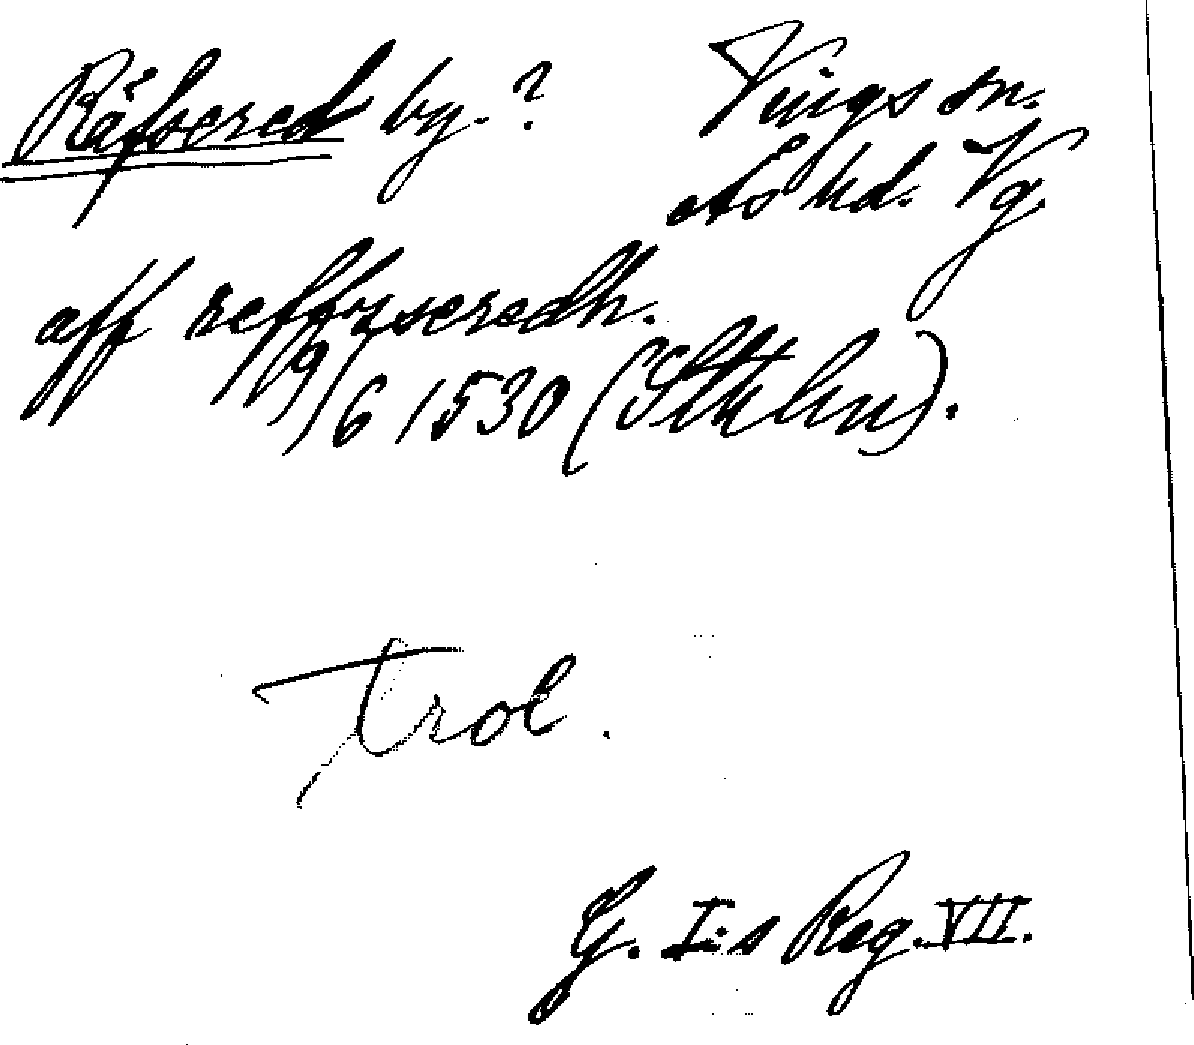 Räfsered by. ? Vings sn.
Ås hd. Vg.
aff reffzseredh.
19/6 1530 (Sthlm).
trol.
G. I:s Reg. VII.